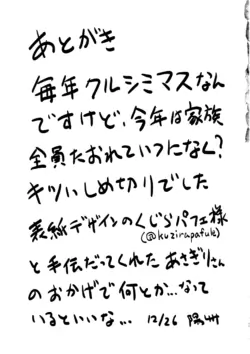 あとがき
毎年クルシミマスなん
ですけど、今年は家族
全員たおれていつになく?
キツいしめ切りでした
表紙デザインのくじらパフェ様
(@kuzirapafule)
と手伝だってくれたあさぎりさん
のおかげで何とか…なって
いるといいな… 12/26